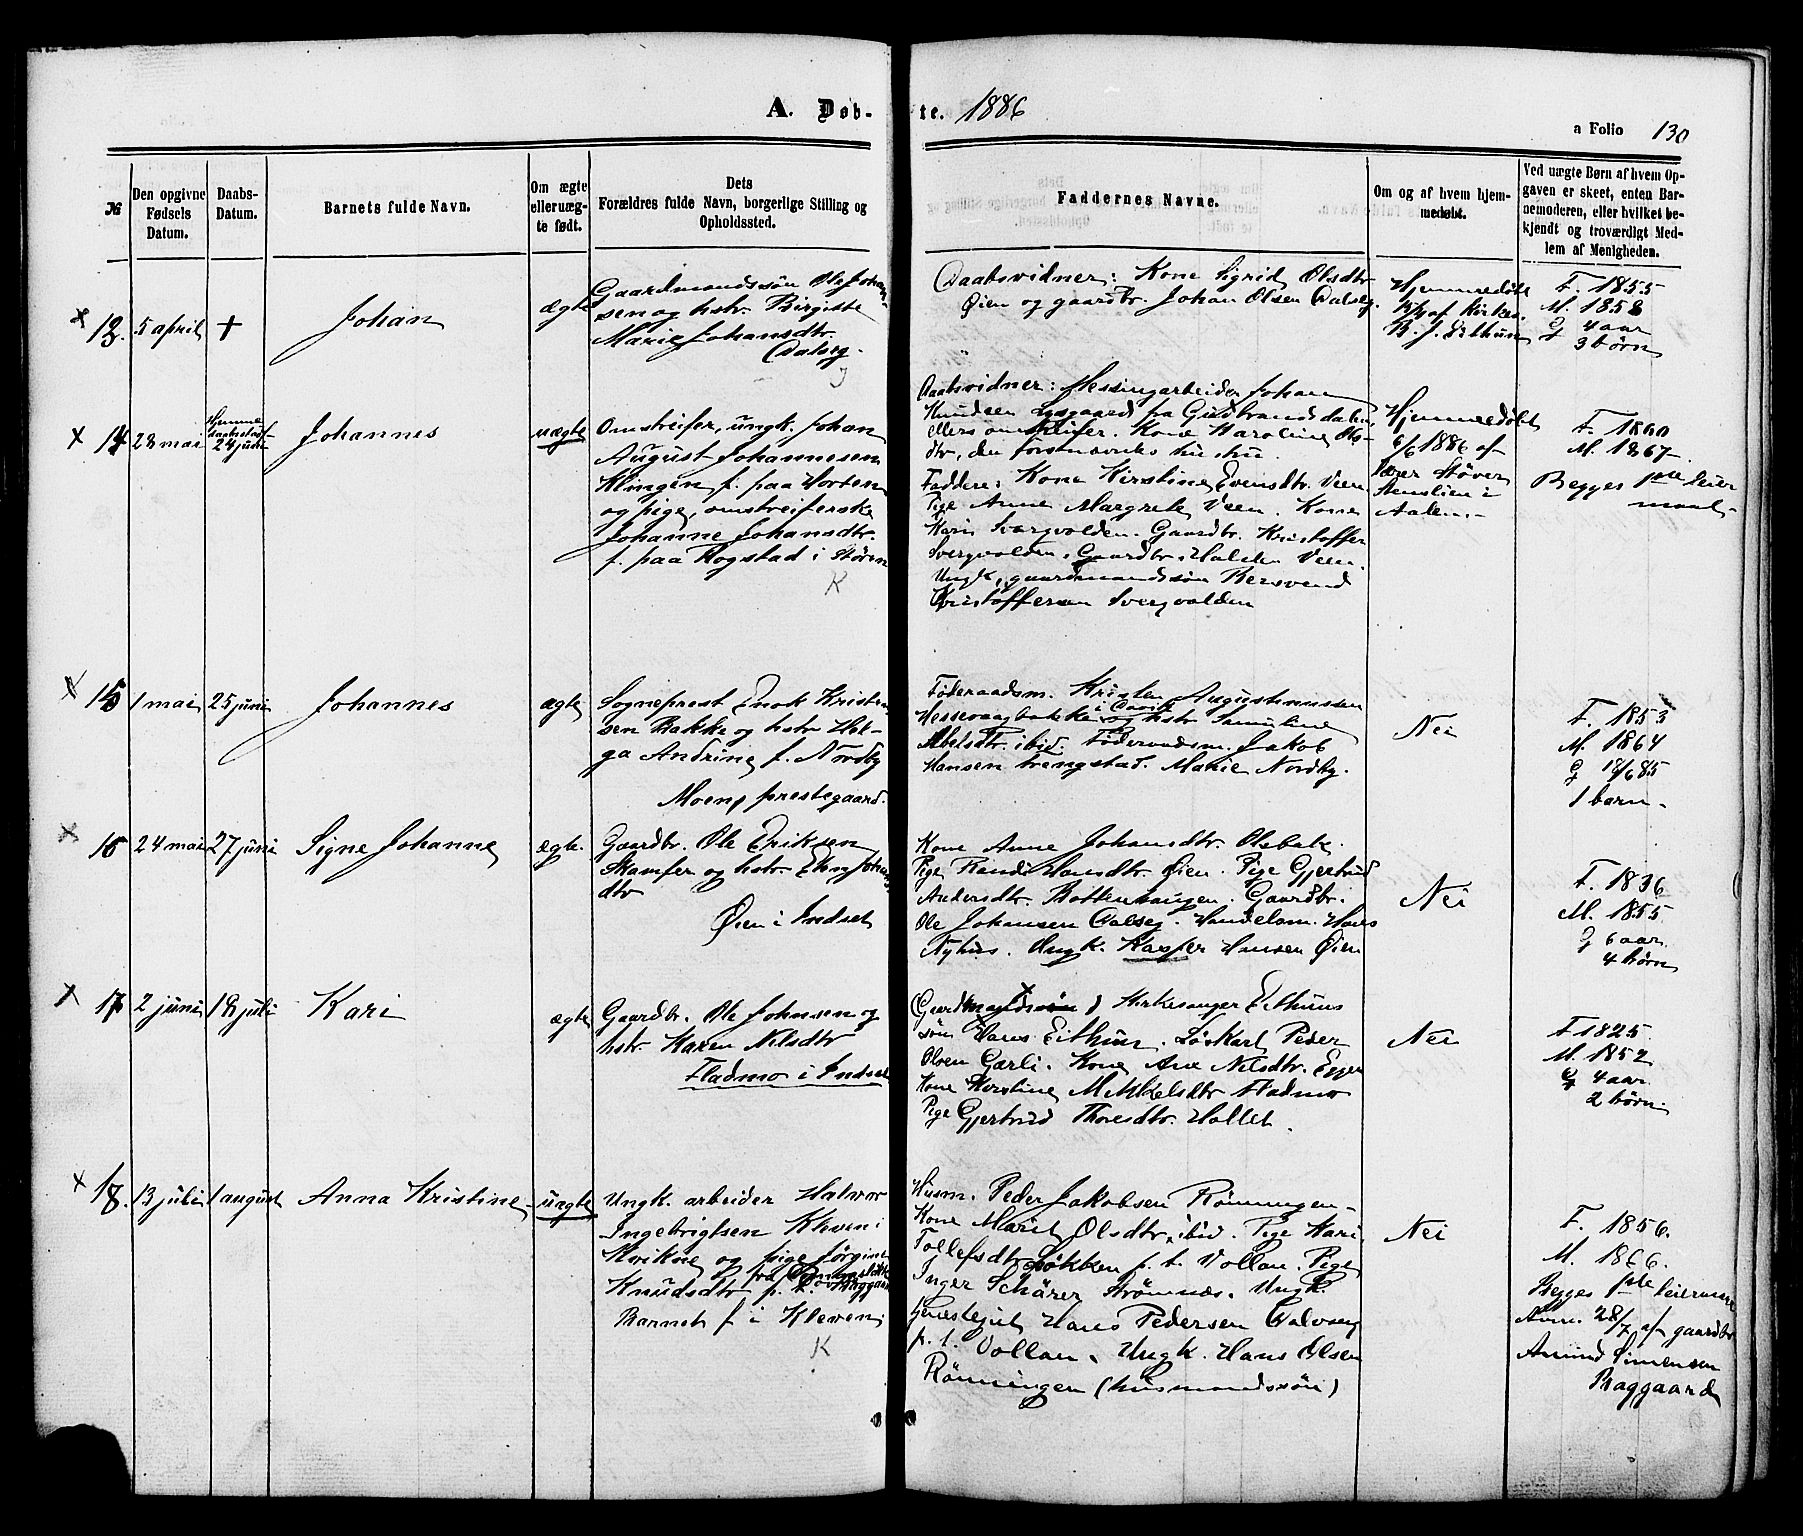 A. Døb-
te. 1886
a Folio 130
№
Den opgivne
Fødsels
Datum.
Daabs-
Datum.
Barnets fulde Navn.
Om ægte
eller uæg-
te født.
Dets
Forældres fulde Navn, borgerlige Stilling og
Opholdssted.
Faddernes Navne.
Om og af hvem hjem-
medøbt.
Ved uægte Børn af hvem Op-
gaven er skeet, enten Bar-
nemoderen, eller hvilket be-
kjendt og troværdigt Med-
lem af Menigheden.
x 13. 5 april + Johan ægte
Gaardmandssøn Ole Johan-
sen og hstr. Birgitte
Marie Johansdtr.
Dalseg.
Daabsvidner: Kone Sigrid Olsdtr
Øien og gaardbr. Johan Olsen Dalseg.
Hjemmedøbt
af kirkes.
B. J. Eithun
F. 1855
M. 1858
G 4 aar
3 børn
x 14 28 mai
Hjemme
daabstadf.
24 juni
Johannes
uægte
Omstreifer, ungk. Johan
August Johannesen
Klingen f. paa Horten
og pige, omstreiferske
Johanne Johansdtr.
f. paa Rogstad i Støren
K
Daabsvidner: Messingarbeider Johan
Knudsen Lysgaard fra Gudbrandsdalen,
ellers omstreifer. Kone Karoline Ols-
dtr, den forstnævntes hustru.
Faddere: Kone Kirstine Evensdtr. Veen
Pige Anne Margrete Veen. Kone
Kari Svergvolden. Gaardbr. Kristoffer
Svergvolden. Gaardbr. Halden Veen.
Ungk, gaardmandssøn Bersvend
Kristoffersen Svergvolden
Hjemmedøbt
6/6 1886 af
Lærer Støver
Stenslien i
Aalen.
F. 1860
M. 1867.
Begges 1ste leier
maal
x 15 1 mai 25 juni Johannes ægte
Sogneprest Enok Kristen
sen Bakke og hstr Hel-
ga Andrine f. Nordby
Moen, prestegaard.
Føderaadsm. Kristen Augustinussen
Hessevaagbakke i Davik og hstr
Abelsdtr. ibid. Føderaadsm. Jakob
Hansen Trengstad. Marie Nordby.
Nei
F. 1853
M. 1864
G 18/6 85
1 barn
x 16 24 mai 27 juni Signe Johanne ægte.
Gaardbr. Ole Eriksen
Skamfer og hstr. Elen Johans
dtr
Øien i Indset
Kone Anne Johansdtr. Olsbak.
Pige Randi Hansdtr. Øien. Pige Gjertrud
Andersdtr. Bottenhaugen. Gaardbr.
Ole Johansen Dalseg. Handelsm. Hans
Nyhus. Ungk. Kasper Hansen Øien
Nei
F. 1836
M. 1855
G 6 aar.
4 børn
x 17 2 juni 18 juli Kari ægte
Gaardbr. Ole Johnsen og
hstr. Karen Nilsdtr
Fladmo i Indset
Gaardmandssøn Kirkesanger Eithuns
søn Hans Eithun. Løskarl Peder
Olsen Garli. Kone Ane Nilsdtr. Eggen
Kone Kirstine Mikkelsdtr Fladmo
Pige Gjertrud Thoresdtr. Hallet.
Nei
F 1825
M. 1852
G 4 aar.
2 børn.
x 18. 13 juli 1 august Anna Kristine uægte
Ungk. arbeider Halvor
Ingebrigtsen Kleven i
Kvikne og pige Jørgine
Knudsdtr p. t.
Barnet f. i Kleven
K
Husm. Peder Jakobsen Rønningen.
Kone Marit Olsdtr. ibid. Pige Kari
Tollefsdtr Løkken p. t. Vollan. Pige
Inger Schärer Strømnæs. Ungk.
Hans Pedersen Dalseg
p. t. Vollan. Ungk. Hans Olsen
Rønningen (husmandssøn)
Nei
F. 1856.
M. 1866.
Begges 1ste leiermaal
Anm. 28/7 af gaardbr
Amund Simensen
Baggaard